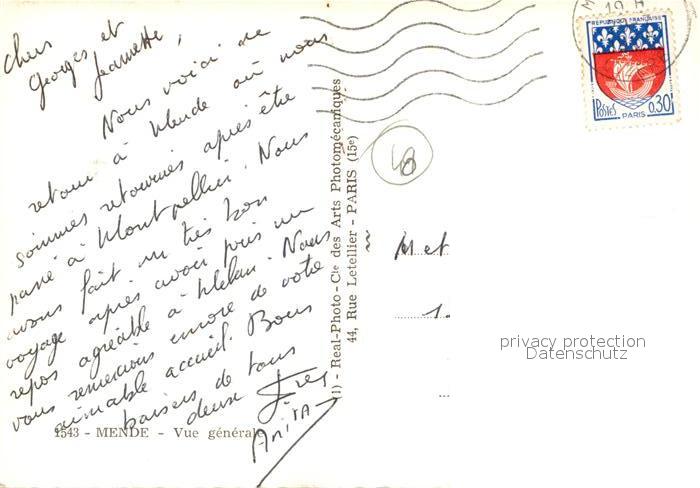 Chers
Georges et
Jeannette,
Nous voici de
retour à Mende où nous
sommes retournés après être
passé à Montpellier. Nous
avons fait un très bon
voyage après avoir pris un
repos agréable à Melan. Nous
vous remercions encore de votre
aimable accueil. Bons
baisers de tous
deux
Anita
1543 - MENDE - Vue générale
(1) - Real-Photo - Cie des Arts Photomécaniques
44, Rue Letellier - PARIS (15e)
19 H
REPUBLIQUE FRANÇAISE
POSTES
0,30
PARIS
48
M et
1.
privacy protection
Datenschutz